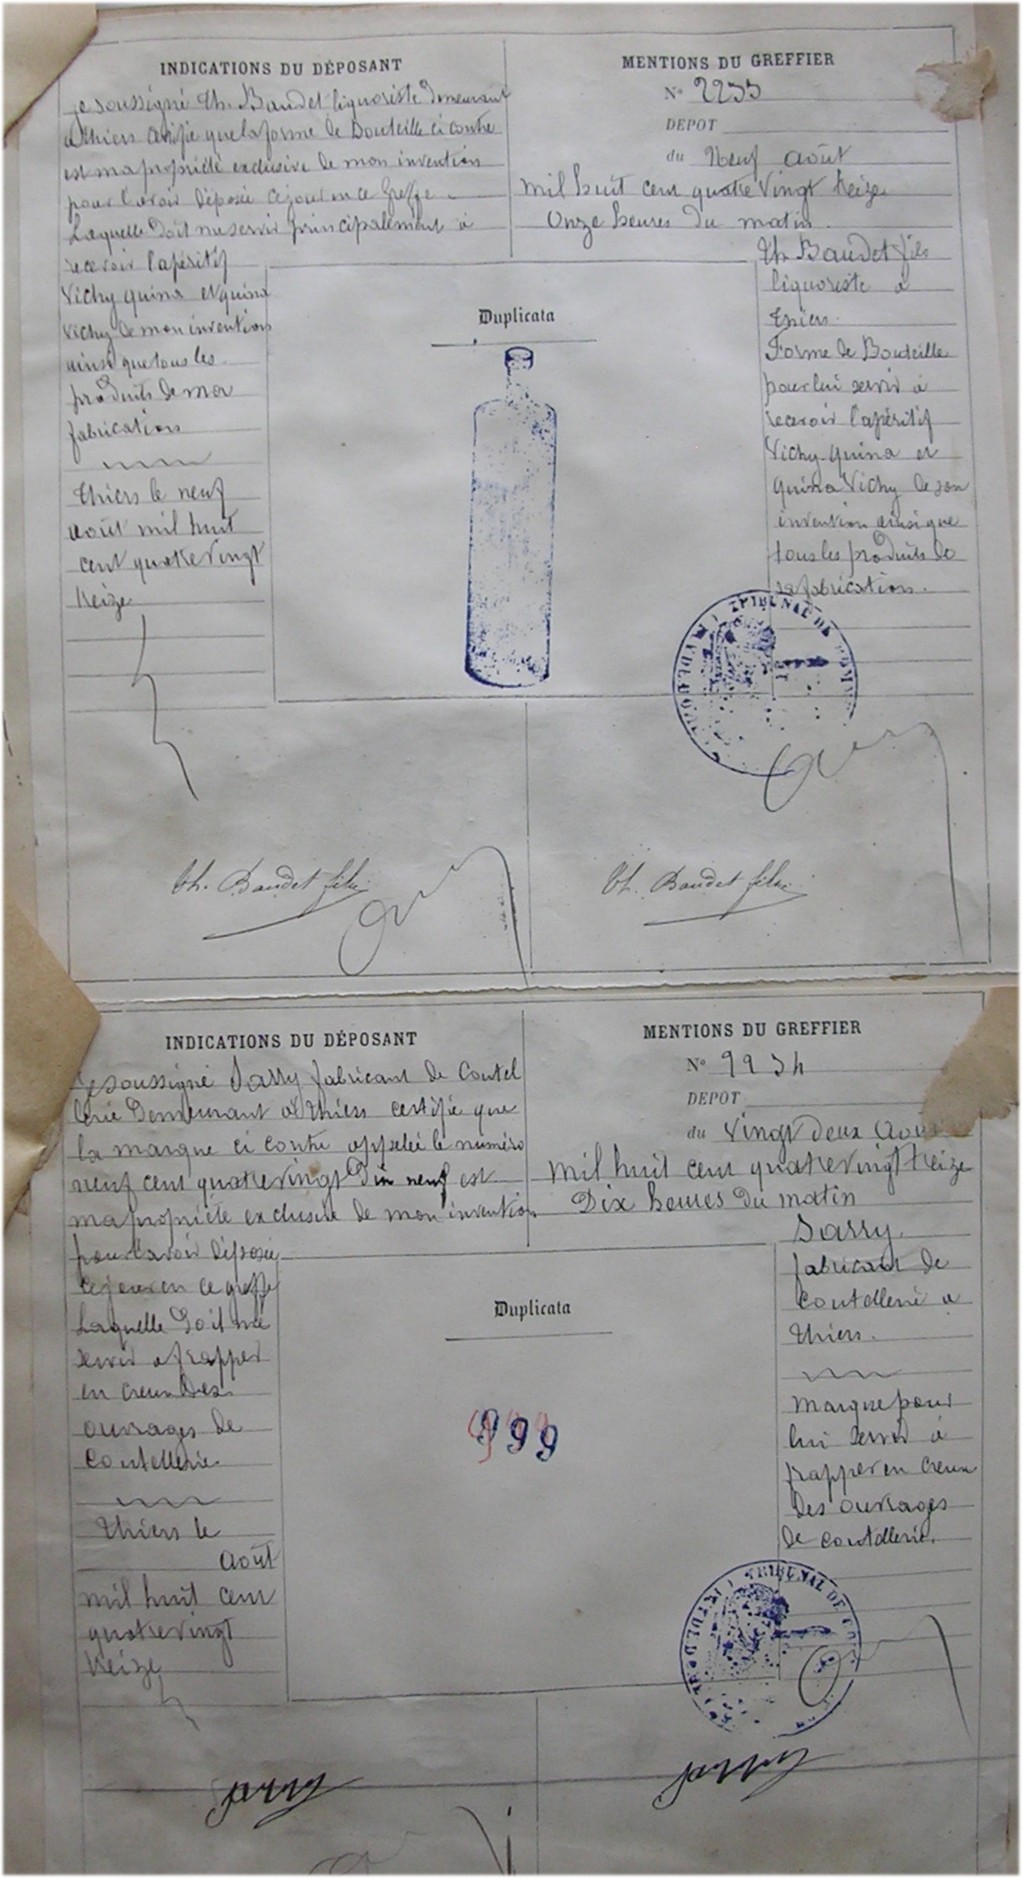 INDICATIONS DU DÉPOSANT
Je soussigné Th. Baudet liquoriste demeurant
à Thiers certifie que la forme de Bouteille ci contre
est ma propriété exclusive de mon invention
pour l'avoir déposée ce jour en ce Greffe
Laquelle doit me servir principalement à
recevoir l'apéritif
Vichy quina et quina
Vichy de mon invention
ainsi que tous les
produits de mon
fabrication
Thiers le neuf
août mil huit
cent quatre vingt
treize
MENTIONS DU GREFFIER
N° 2233
DEPOT
du Neuf août
mil huit cent quatre vingt treize
Onze heures du matin.
Th. Baudet fils
liquoriste a
Thiers.
Forme de Bouteille
pour lui servir à
recevoir l'apéritif
Vichy-quina et
quina Vichy de son
invention ainsi que
tous les produits de
sa fabrication.
Duplicata
TRIBUNAL DE COM
Th. Baudet fils
Th. Baudet fils
INDICATIONS DU DÉPOSANT
Je soussigné Sarry fabricant de Coutel
lerie Demeurant à Thiers certifie que
la marque ci contre appelée le numéro
neuf cent quatre vingt Dix neuf est
ma propriété exclusive de mon invention
pour l'avoir déposée
ce jour en ce greffe
Laquelle doit me
servir a frapper
en creux des
ouvrages de
Coutellerie
Thiers le
août
mil huit cent
quatre vingt
treize
MENTIONS DU GREFFIER
N° 2234
DEPOT
du Vingt deux Août
Mil huit cent quatre vingt treize
Dix heures du matin
Sarry
fabricant de
Coutellerie a
Thiers.
Marque pour
lui servir à
frapper en creux
Des ouvrages
de coutellerie.
Duplicata
999
TRIBUNAL DE CO
Sarry
Sarry